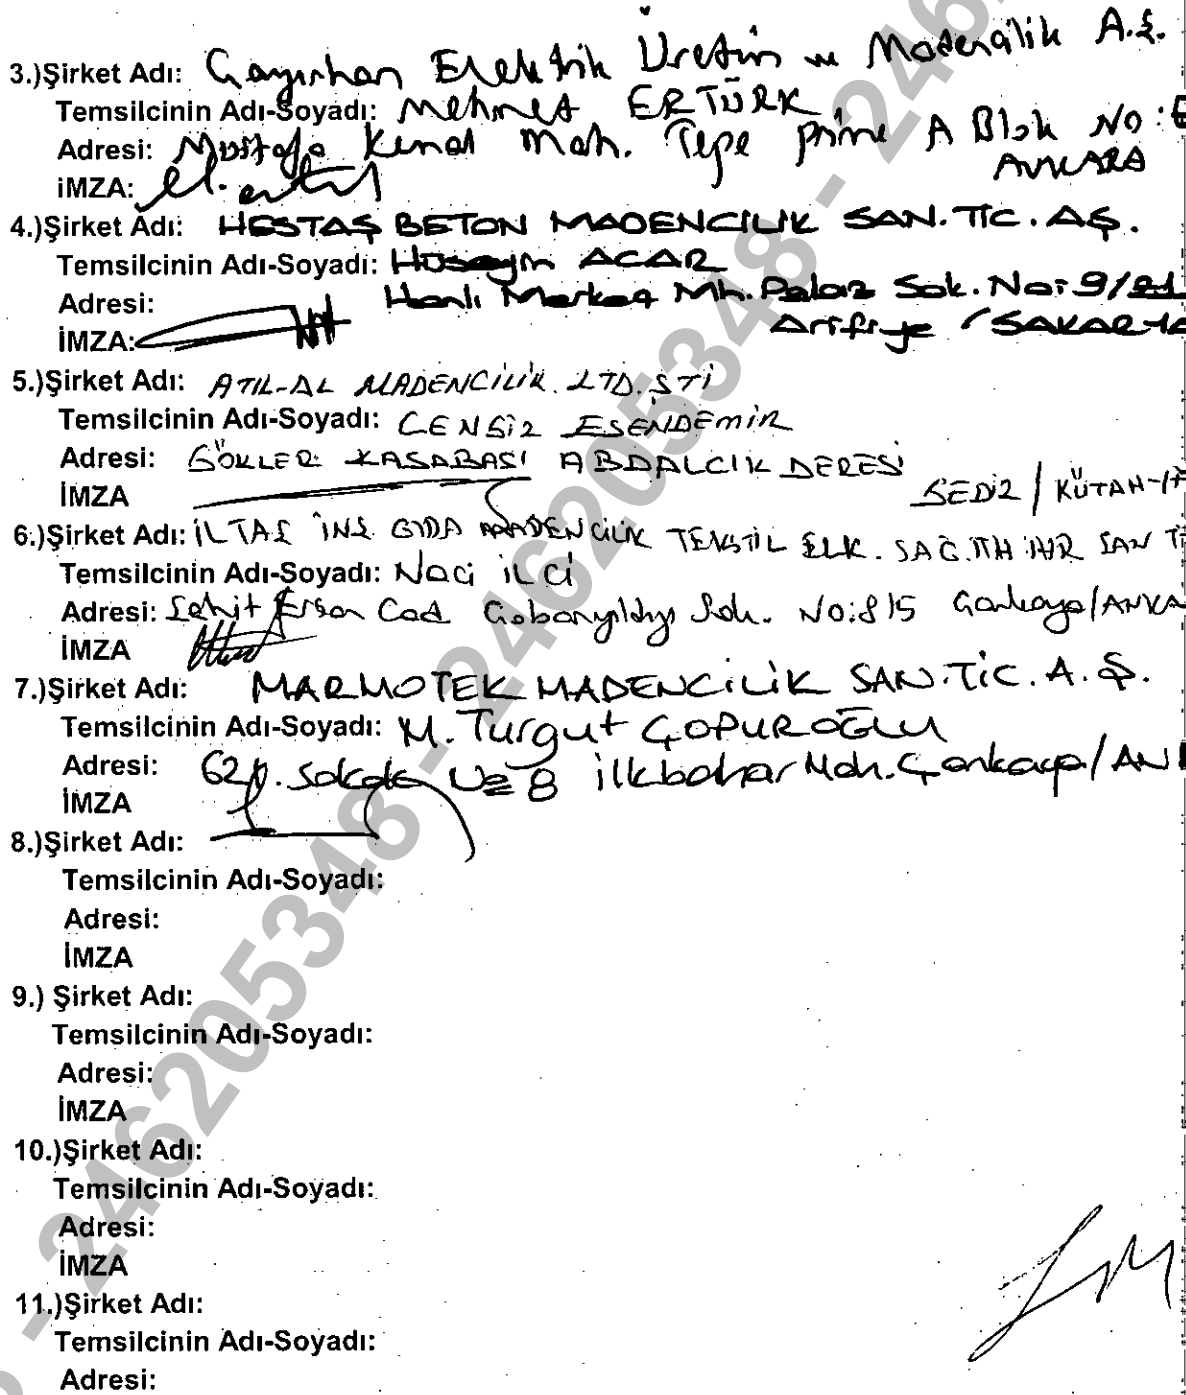 3.)Şirket Adı: Çayırhan Elektrik Üretim ve Madencilik A.Ş.
Temsilcinin Adı-Soyadı: Mehmet ERTÜRK
Adresi: Mustafa Kemal Mah. Tepe prime A Blok No:
ANKARA
iMZA:
4.)Şirket Adı: HESTAŞ BETON MADENCİLİK SAN.TİC.AŞ.
Temsilcinin Adı-Soyadı: Hüseyin ACAR
Adresi: Hanlı Merkez Mh. Palaz Sok. No: 9/21
Arifiye / SAKARYA
İMZA:
5.)Şirket Adı: ATIL-AL MADENCİLİK LTD. ŞTİ
Temsilcinin Adı-Soyadı: CENGİZ ESENDEMİR
Adresi: GÖKLER KASABASI ABDALCIK DERESİ
GEDİZ / KÜTAHYA
İMZA
6.)Şirket Adı: İLTAŞ İNŞ GIDA MADENCİLİK TEKSTİL ELK. SAĞ. İTH İHR SAN Tİ
Temsilcinin Adı-Soyadı: Naci iLCi
Adresi: Şehit Ersan Cad Çobanyıldızı Sok. No:8/5 Çankaya/ANKA
İMZA
7.)Şirket Adı: MARMOTEK MADENCİLİK SAN.TİC.A.Ş.
Temsilcinin Adı-Soyadı: M. Turgut ÇOPUROĞLU
Adresi: Sokak No 8 ilkbahar Mah. Çankaya/AN
İMZA
8.)Şirket Adı:
Temsilcinin Adı-Soyadı:
Adresi:
İMZA
9.) Şirket Adı:
Temsilcinin Adı-Soyadı:
Adresi:
İMZA
10.)Şirket Adı:
Temsilcinin Adı-Soyadı:
Adresi:
İMZA
11.)Şirket Adı:
Temsilcinin Adı-Soyadı:
Adresi:
- 246205348 - 246205348 - 246